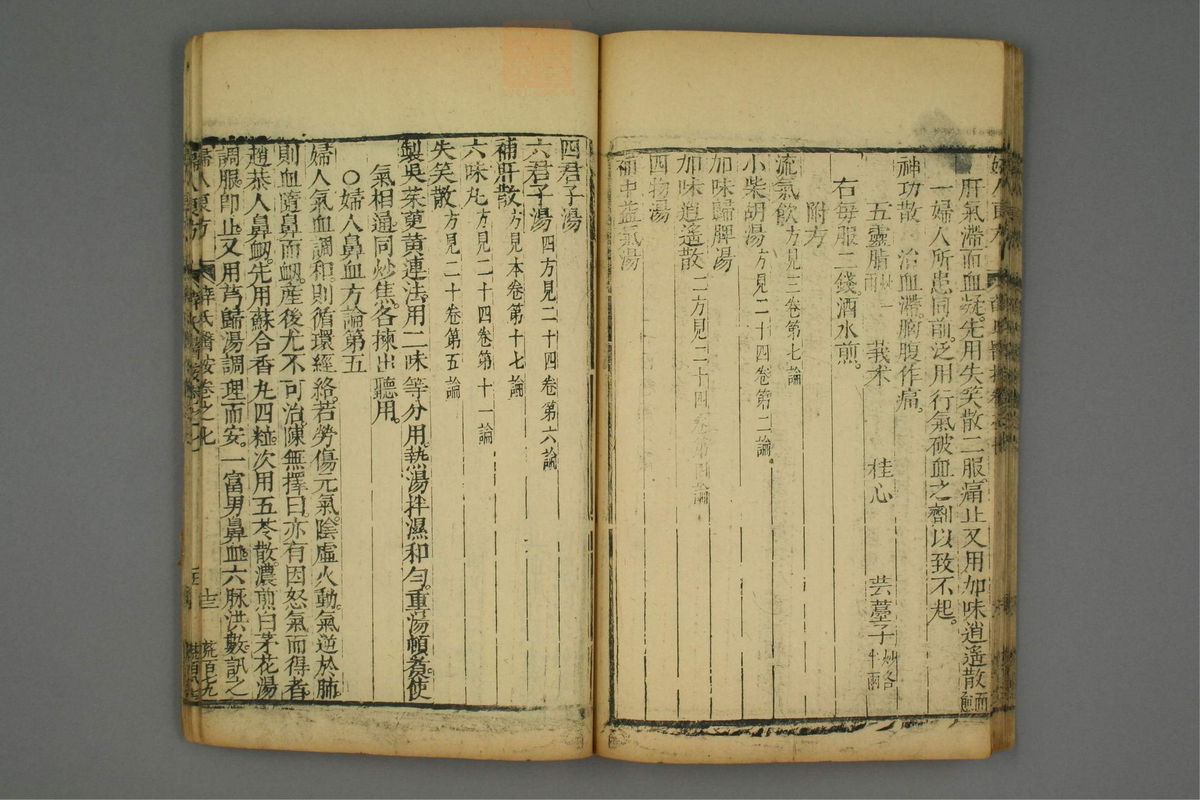 肝氣滯而血凝先用失笑散二服痛止又用加味逍遙散而愈
一婦人所患同前泛用行氣破血之劑以致不起
神功散 治血滯胸腹作痛
五靈脂 莪术 桂心 芸薹子
右每服二錢酒水煎
附方
流氣飲方見三卷第七論
小柴胡湯方見二十四卷第二論
加味歸脾湯
加味逍遙散二方見二十四卷第四論
四物湯
補中益氣湯
四君子湯
六君子湯四方見二十四卷第六論
補肝散方見本卷第十七論
六味丸方見二十四卷第十一論
失笑散方見二十卷第五論
製吳茱萸黃連法用二味等分用熱湯拌濕和勻重湯頓煮使
氣相通同炒焦各揀出聽用
○婦人鼻血方論第五
婦人氣血調和則循環經絡若勞傷元氣陰虛火動氣逆於肺
則血隨鼻而衂產後尤不可治陳無擇曰亦有因怒氣而得者
趙恭人鼻衂先用蘇合香丸四粒次用五苓散濃煎白茅花湯
調服即止又用芎歸湯調理而安一富男鼻血六脉洪數訊之